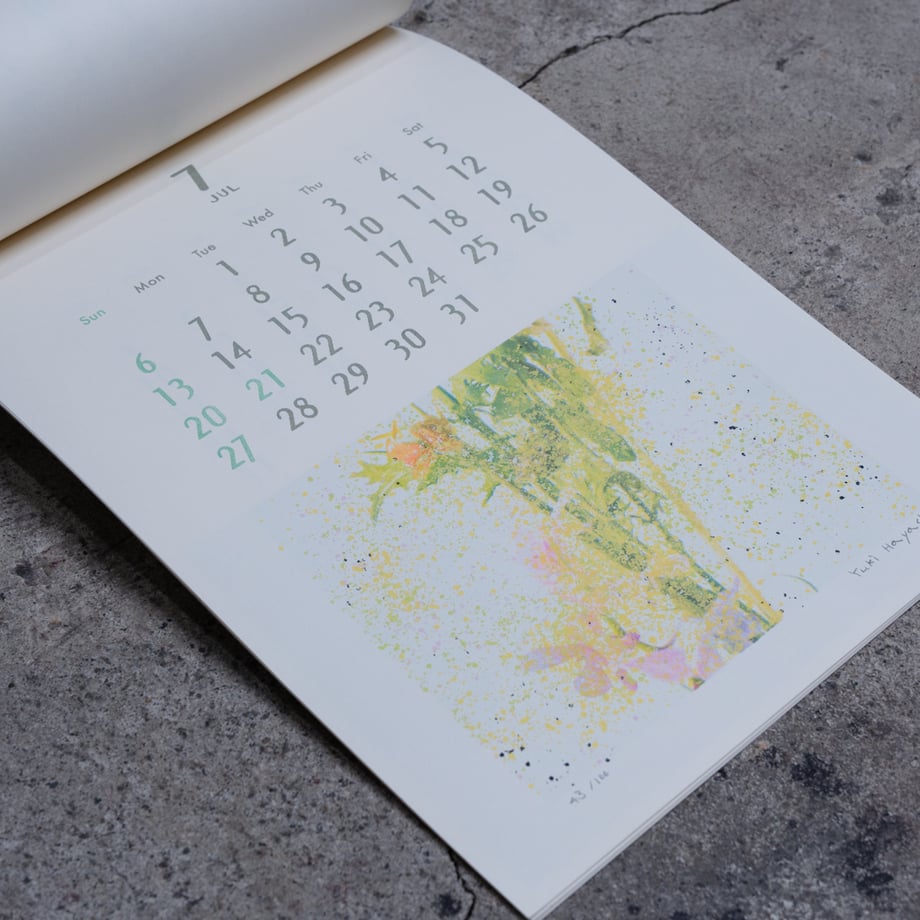 7
JUL
Sun Mon Tue Wed Thu Fri Sat
1 2 3 4 5
6 7 8 9 10 11 12
13 14 15 16 17 18 19
20 21 22 23 24 25 26
27 28 29 30 31
Yuki Haya
43/100